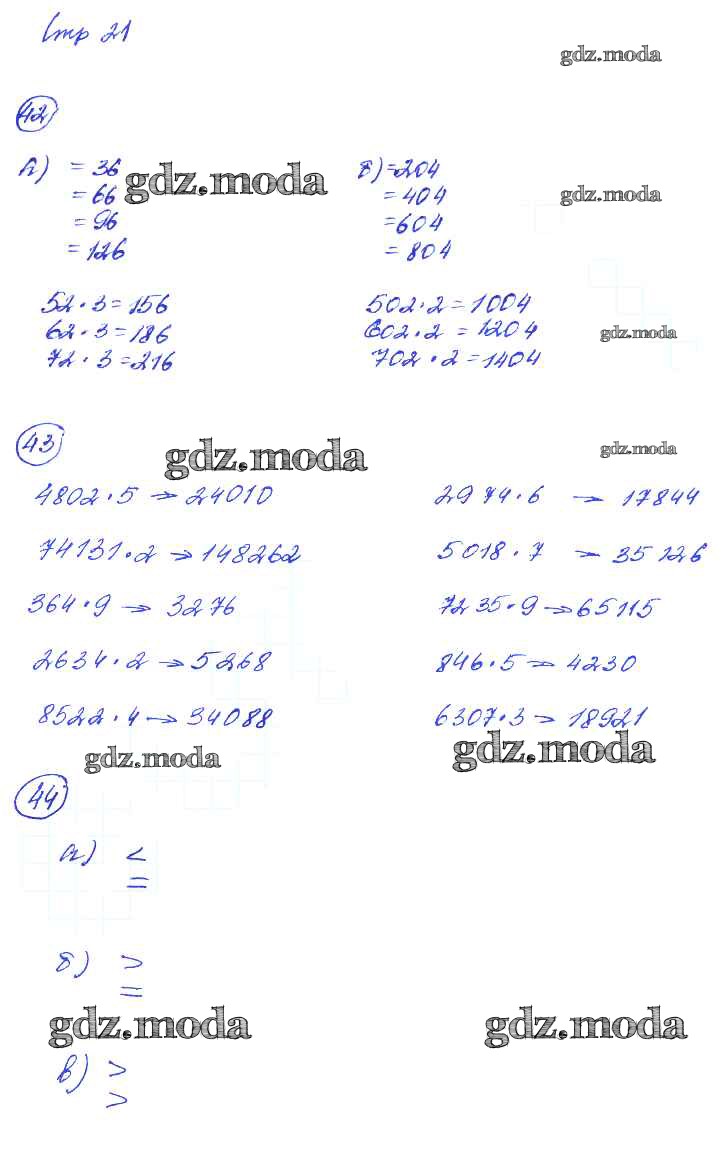 Стр 21
gdz.moda
42
а) = 36 б) = 204
gdz.moda
= 66 = 404
gdz.moda
= 96 = 604
= 126 = 804
52 · 3 = 156 502 · 2 = 1004
62 · 3 = 186 602 · 2 = 1204
gdz.moda
72 · 3 = 216 702 · 2 = 1404
43
gdz.moda gdz.moda
4802 · 5 → 24010 2974 · 6 → 17844
74131 · 2 → 148262 5018 · 7 → 35126
364 · 9 → 3276 7235 · 9 → 65115
2634 · 2 → 5268 846 · 5 → 4230
8522 · 4 → 34088 6307 · 3 → 18921
gdz.moda gdz.moda
44
а) <
=
б) >
=
gdz.moda gdz.moda
в) >
>